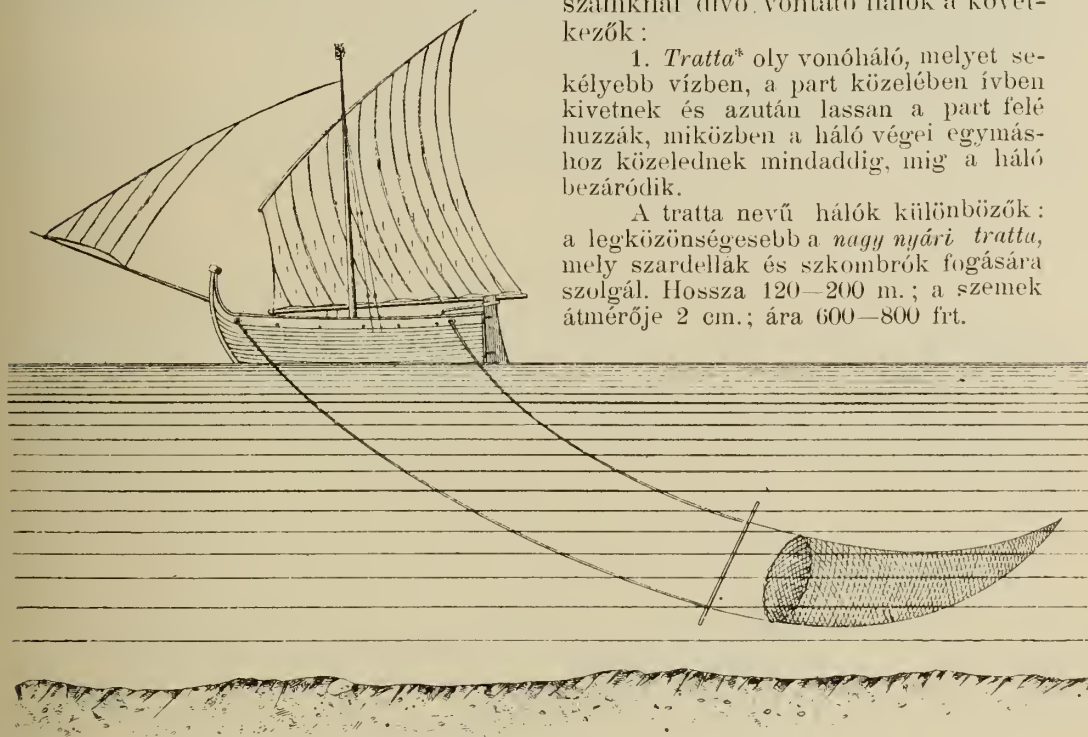 szainknál dívó vontató hálók a követ-
kezők :
1. Tratta* oly vonóháló, melyet se-
kélyebb vízben, a part közelében ívben
kivetnek és azután lassan a part felé
huzzák, miközben a háló végei egymás-
hoz közelednek mindaddig, mig a háló
bezáródik.
A tratta nevű hálók különbözők :
a legközönségesebb a nagy nyári tratta,
mely szardellák és szkombrók fogására
szolgál. Hossza 120—200 m. ; a szemek
átmérője 2 cm. ; ára 600—800 frt.